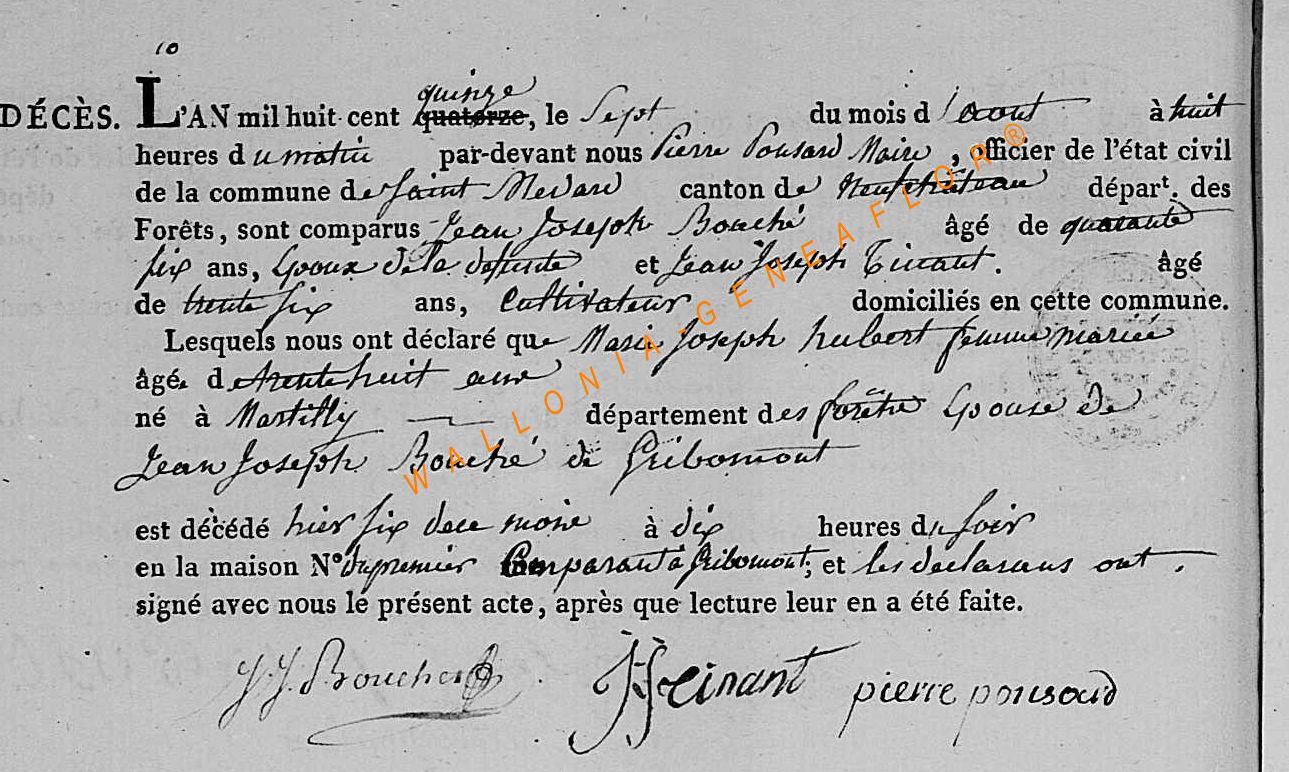 10
DÉCÈS. L'AN mil huit cent quatorze, quinze le Sept du mois d'Aout à huit
heures du matin par-devant nous Pierre Pousard Maire, officier de l'état civil
de la commune de Saint Medard canton de Neufchâteau départ. des
Forêts, sont comparus Jean Joseph Bouché âgé de quarante
six ans, Epoux de la defunte et Jean Joseph Tinant. âgé
de trente six ans, Cultivateur domiciliés en cette commune.
Lesquels nous ont déclaré que Marie Joseph hubert femme mariée
âgée de trente huit ans
né à Martilly département des forêts Epouse de
Jean Joseph Bouché de Gribomont
est décédé hier six de ce mois à dix heures du soir
en la maison N° du premier Comparant à Gribomont; et les declarans ont
signé avec nous le présent acte, après que lecture leur en a été faite.
J. J. Boucher JJ Tinant pierre pousard
WALLONIA-GENEAFLOR®